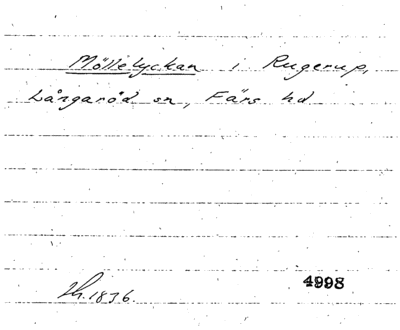 Möllelyckan i Rugerup,
Långaröd sn, Färs hd
4998
Lh. 1836.